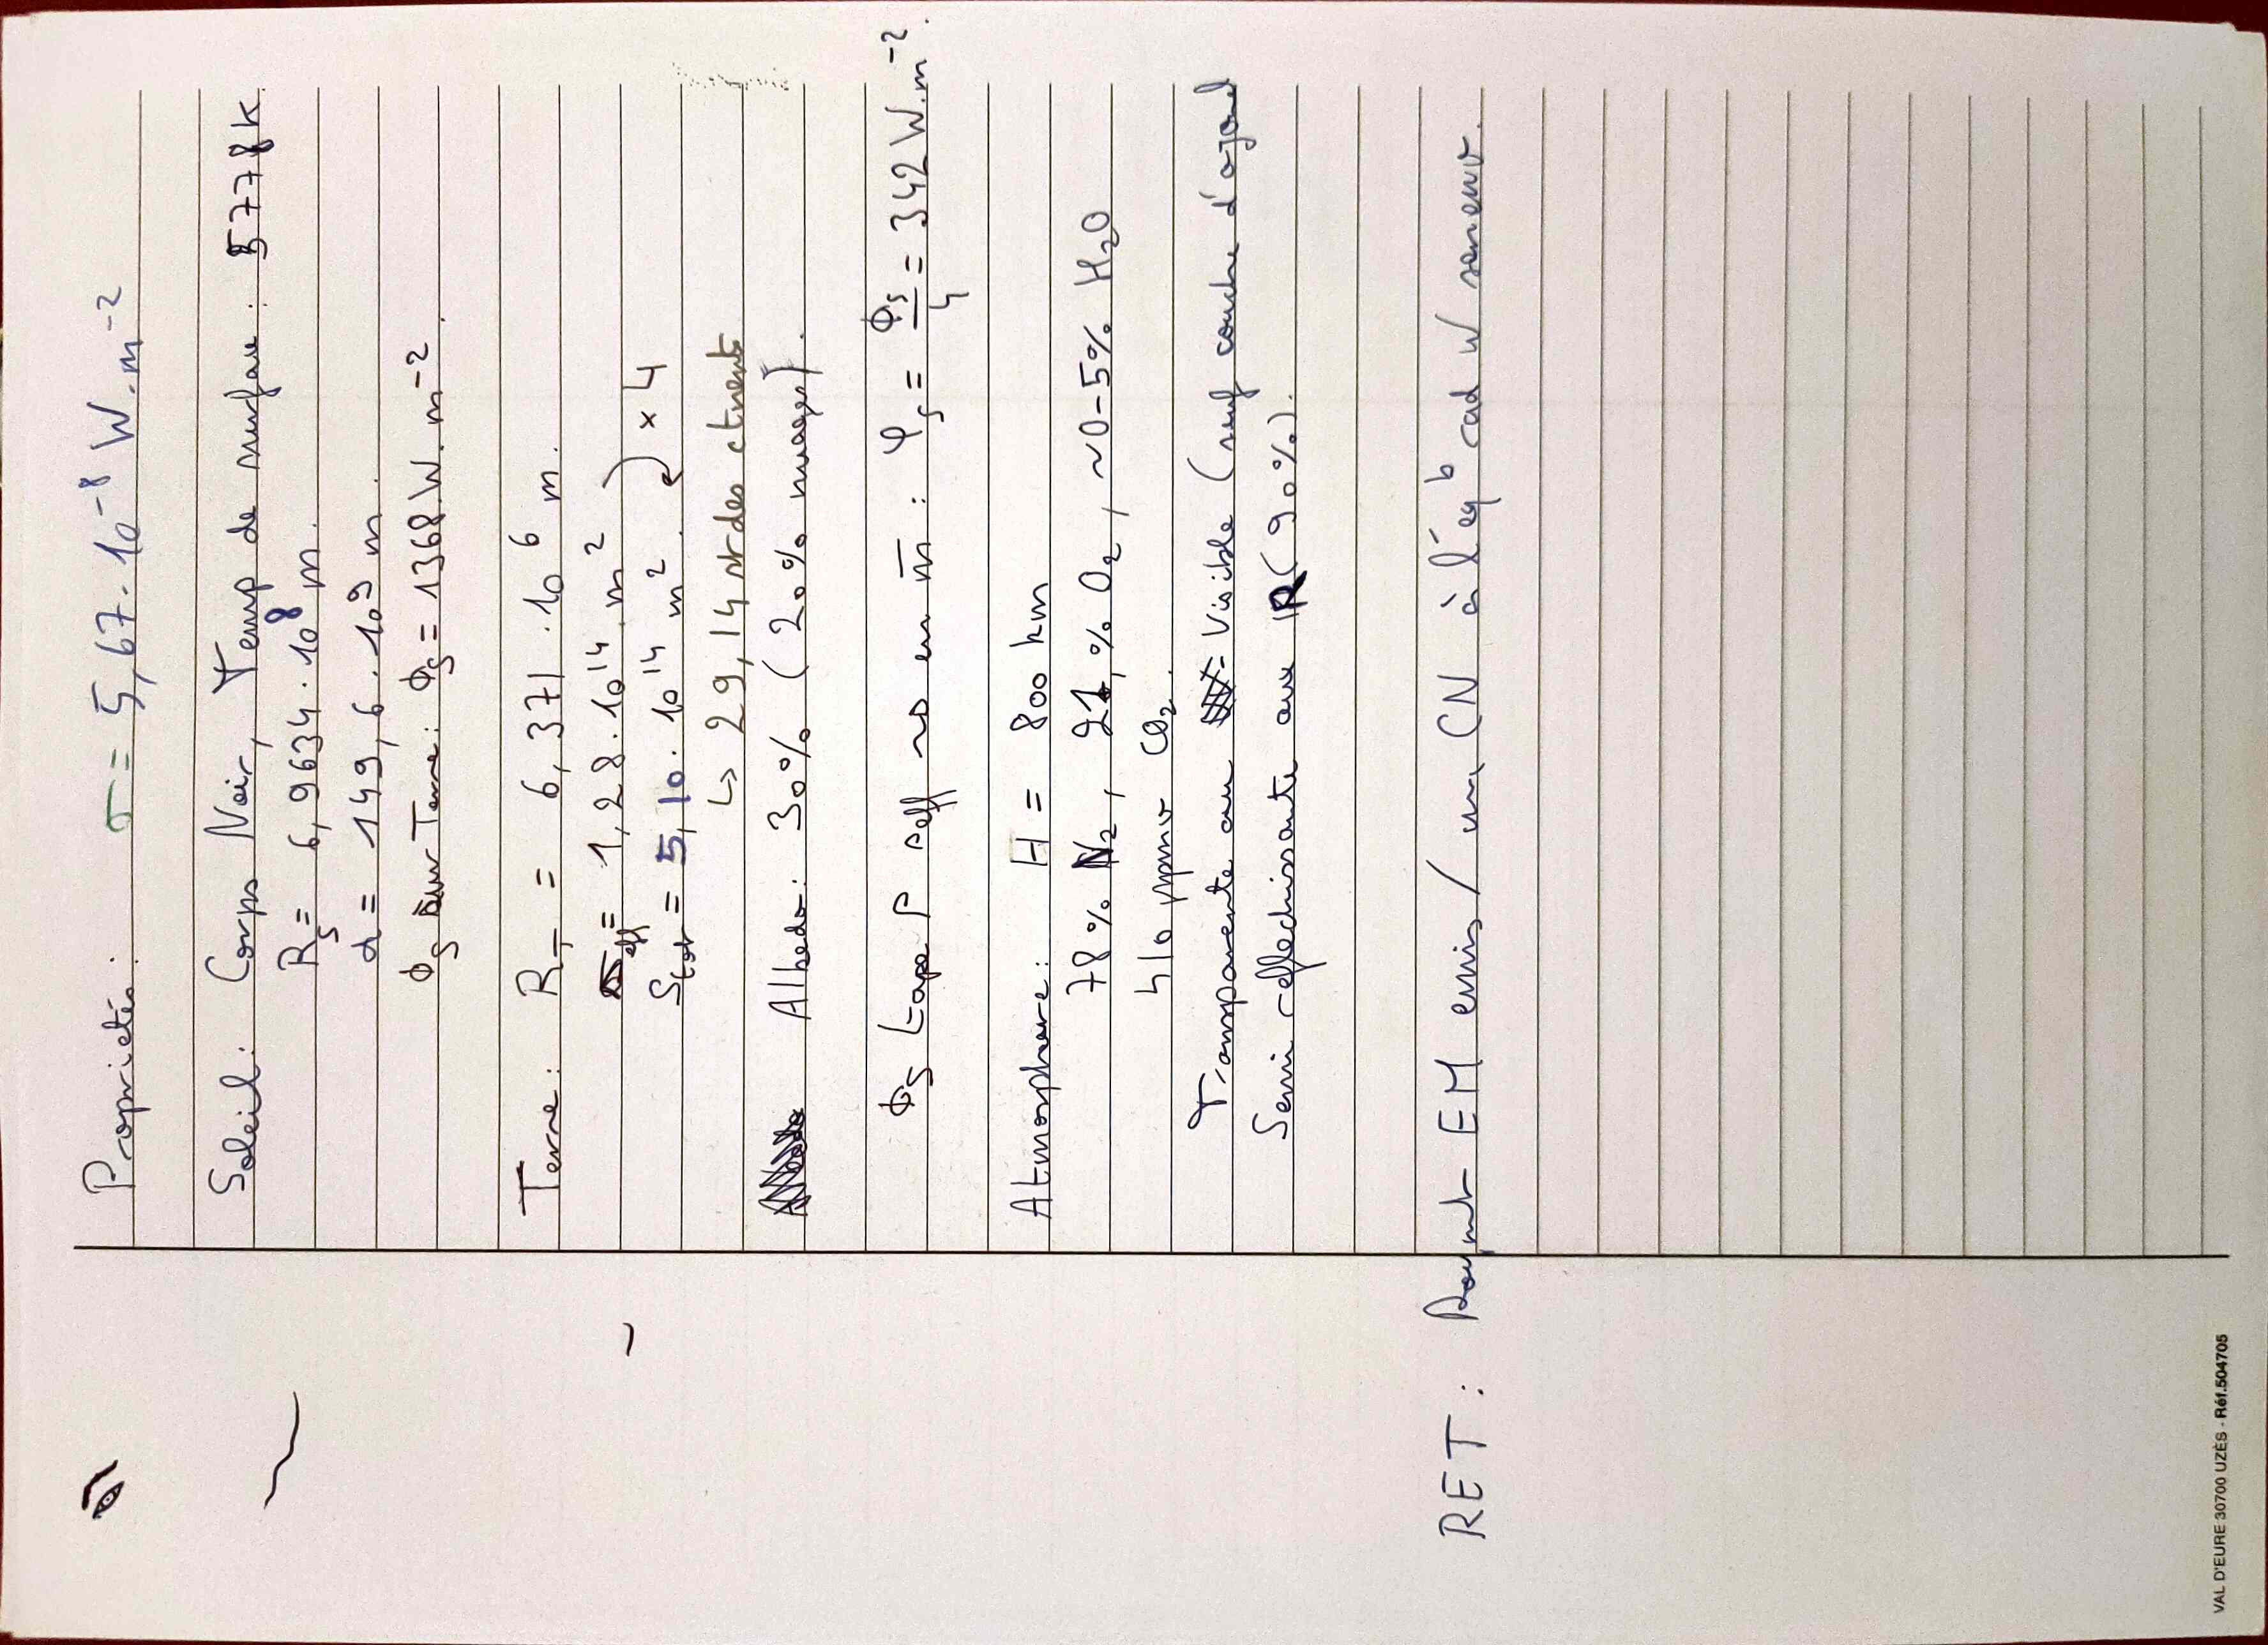 Propriétés : σ = 5,67 . 10⁻⁸ W.m⁻²
Soleil : Corps Noir, Temp de surface : 5778 K
R_S = 6,9634 . 10⁸ m.
d = 149,6 . 10⁹ m.
Φ_S sur Terre : Φ_S = 1368 W.m⁻².
Terre : R_T = 6,371 . 10⁶ m.
S_eff = 1,28 . 10¹⁴ m²
S_tot = 5,10 . 10¹⁴ m². ) × 4
↳ 29,14 % des ctnents
Albedo : 30% (20% nuages).
Φ_S tape S_eff → en m̄ : φ_S = Φ_S/4 = 342 W.m⁻².
Atmosphere : H = 800 km
78% N₂, 21% O₂, ~0-5% H₂O
410 ppmv CO₂.
Transparente au Visible (sauf couche d'ozone)
Semi refléchissante aux IR (90%).
RET : Raymt EM emis / un CN à l'éq^b rad W
VAL D'EURE 30700 UZÈS - Réf.504705